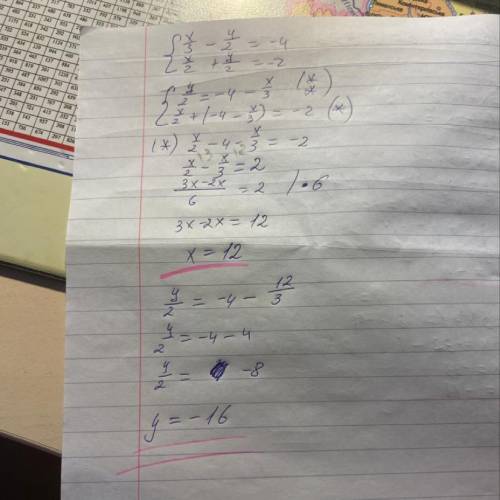 { x/3 - y/2 = -4
x/2 + y/2 = -2
{ y/2 = -4 - x/3 (x/x)
x/2 + (-4 - x/3) = -2 (x)
(x) x/2 - 4 - x/3 = -2
x/2 - x/3 = 2
3x-2x/6 = 2 /•6
3x-2x = 12
x = 12
y/2 = -4 - 12/3
y/2 = -4 - 4
y/2 = -8
y = -16